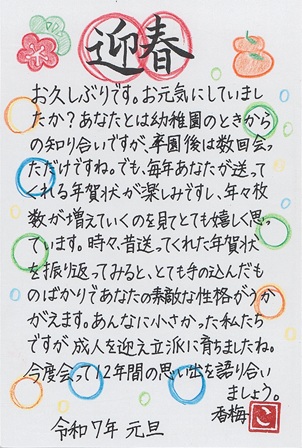 迎春
お久しぶりです。お元気にしていまし
たか？あなたとは幼稚園のときから
の知り合いですが、卒園後は数回会っ
ただけですね。でも、毎年あなたが送って
くれる年賀状が楽しみですし、年々枚
数が増えていくのを見てとても嬉しく思っ
ています。時々、昔送ってくれた年賀状
を振り返ってみると、とても手の込んだも
のばかりであなたの素敵な性格がうか
がえます。あんなに小さかった私たち
ですが成人を迎え立派に育ちましたね。
今度会って12年間の思い出を語り合い
ましょう。
香梅
令和7年 元旦